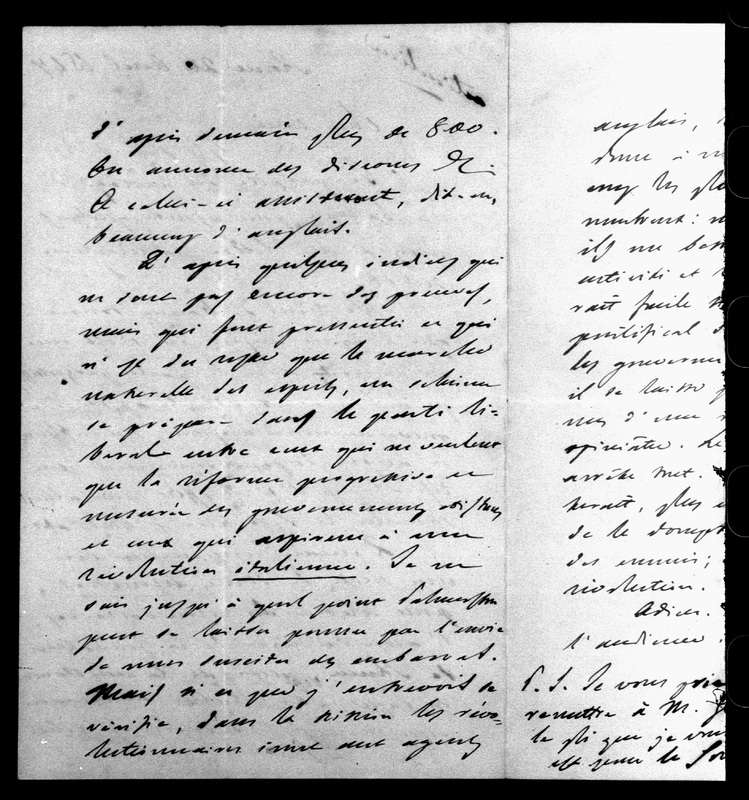 d'après demain plus de 800.
On annonce des discours &c.
A celui-ci assisteront, dit-on,
beaucoup d'anglais.
D'après quelques indices qui
ne sont pas encore des preuves,
mais qui font pressentir ce qui
n'est du reste que la marche
naturelle des esprits, un schisme
se prépare dans le parti li-
beral entre ceux qui ne veulent
que la réforme progressive et
mesurée des gouvernements existans
et ceux qui aspirent à une
révolution italienne. Je ne
sais jusqu'à quel point Palmerston
peut se laisser pousser par l'envie
de nous susciter des embarras.
Mais si ce que j'entrevois se
vérifie, dans la scission les révo-
lutionnaires iront aux agents
anglais,
donc à
les
montrent:
ils me
activité et
rait facile
pontifical
les gouverne
il se laisse
mes d'une
opiniâtre. Le
arrête tout.
plus
de le
des ennuis;
révolution.
Adieu.
l'audience
P. S. Je vous prie
remettre à M.
le pli que je vous
est pour le